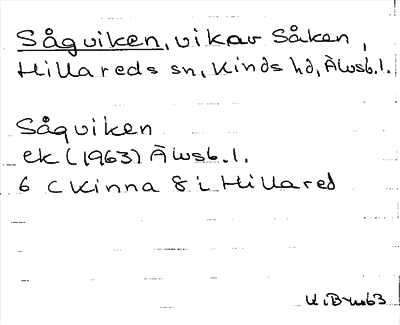 Sågviken, vik av Såken,
Hillareds sn, Kinds hd, Älvsb.l.
Sågviken
ek (1963) Älvsb.l.
6 C Kinna 8 i Hillared